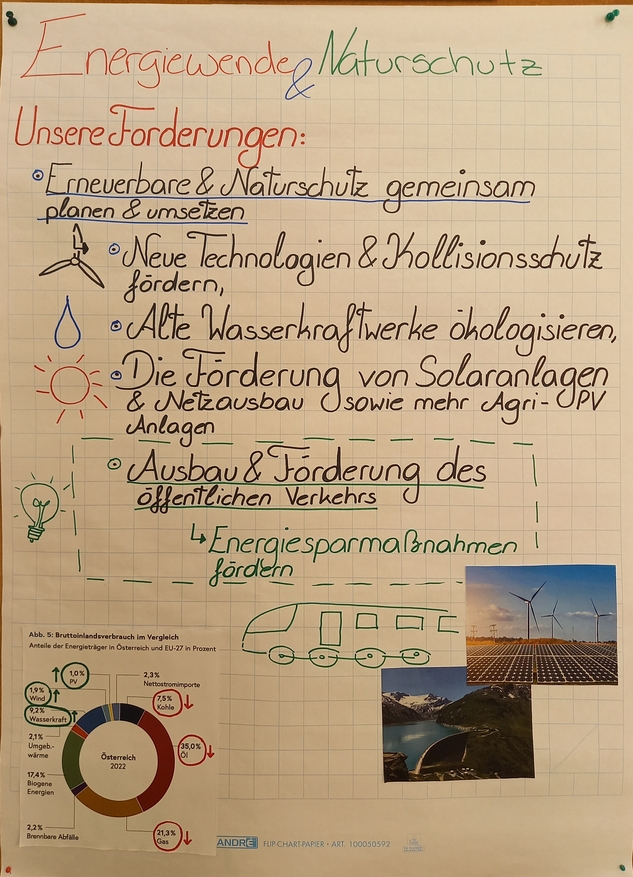 Energiewende & Naturschutz
Unsere Forderungen:
Erneuerbare & Naturschutz gemeinsam
planen & umsetzen
Neue Technologien & Kollisionsschutz
fördern,
Alte Wasserkraftwerke ökologisieren,
Die Förderung von Solaranlagen
& Netzausbau sowie mehr Agri-PV
Anlagen
Ausbau & Förderung des
öffentlichen Verkehrs
↳ Energiesparmaßnahmen
fördern
Abb. 5: Bruttoinlandsverbrauch im Vergleich
Anteile der Energieträger in Österreich und EU-27 in Prozent
1,0%
PV
2,3%
Nettostromimporte
1,9%
Wind
7,5%
Kohle
9,2%
Wasserkraft
2,1%
Umgeb.-
wärme
35,0%
Öl
Österreich
2022
17,4%
Biogene
Energien
2,2%
Brennbare Abfälle
21,3%
Gas
ANDRE FLIP-CHART-PAPIER • ART. 100050592